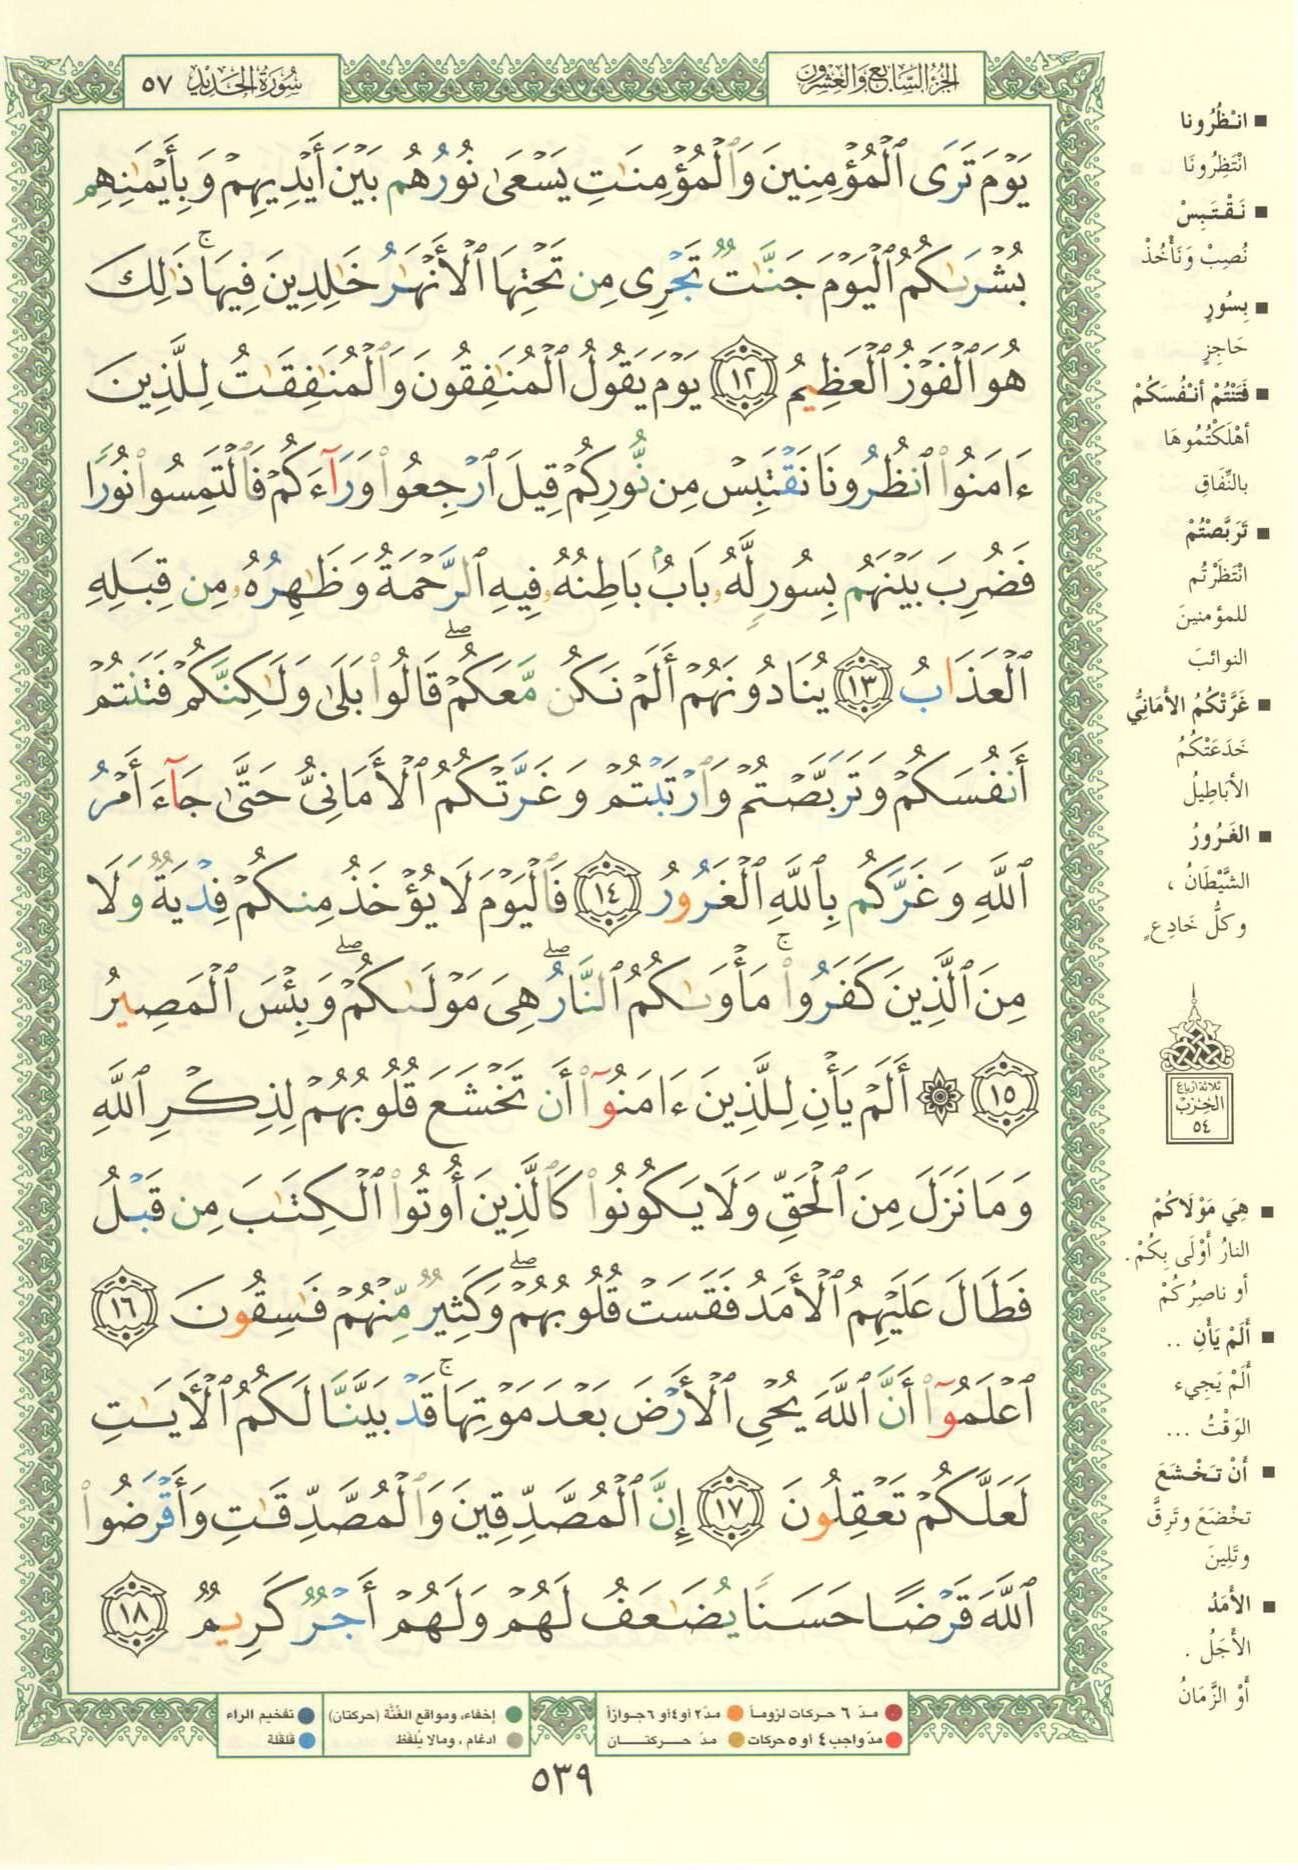 الجزء السابع والعشرون
سورة الحديد ٥٧
يَوْمَ تَرَى ٱلْمُؤْمِنِينَ وَٱلْمُؤْمِنَٰتِ يَسْعَىٰ نُورُهُم بَيْنَ أَيْدِيهِمْ وَبِأَيْمَٰنِهِم
بُشْرَىٰكُمُ ٱلْيَوْمَ جَنَّٰتٌ تَجْرِى مِن تَحْتِهَا ٱلْأَنْهَٰرُ خَٰلِدِينَ فِيهَا ۚ ذَٰلِكَ
هُوَ ٱلْفَوْزُ ٱلْعَظِيمُ ١٢ يَوْمَ يَقُولُ ٱلْمُنَٰفِقُونَ وَٱلْمُنَٰفِقَٰتُ لِلَّذِينَ
ءَامَنُوا۟ ٱنظُرُونَا نَقْتَبِسْ مِن نُّورِكُمْ قِيلَ ٱرْجِعُوا۟ وَرَآءَكُمْ فَٱلْتَمِسُوا۟ نُورًا
فَضُرِبَ بَيْنَهُم بِسُورٍ لَّهُۥ بَابٌۢ بَاطِنُهُۥ فِيهِ ٱلرَّحْمَةُ وَظَٰهِرُهُۥ مِن قِبَلِهِ
ٱلْعَذَابُ ١٣ يُنَادُونَهُمْ أَلَمْ نَكُن مَّعَكُمْ ۖ قَالُوا۟ بَلَىٰ وَلَٰكِنَّكُمْ فَتَنتُمْ
أَنفُسَكُمْ وَتَرَبَّصْتُمْ وَٱرْتَبْتُمْ وَغَرَّتْكُمُ ٱلْأَمَانِىُّ حَتَّىٰ جَآءَ أَمْرُ
ٱللَّهِ وَغَرَّكُم بِٱللَّهِ ٱلْغَرُورُ ١٤ فَٱلْيَوْمَ لَا يُؤْخَذُ مِنكُمْ فِدْيَةٌ وَلَا
مِنَ ٱلَّذِينَ كَفَرُوا۟ ۚ مَأْوَىٰكُمُ ٱلنَّارُ ۖ هِىَ مَوْلَىٰكُمْ ۖ وَبِئْسَ ٱلْمَصِيرُ
١٥ ۞ أَلَمْ يَأْنِ لِلَّذِينَ ءَامَنُوٓا۟ أَن تَخْشَعَ قُلُوبُهُمْ لِذِكْرِ ٱللَّهِ
وَمَا نَزَلَ مِنَ ٱلْحَقِّ وَلَا يَكُونُوا۟ كَٱلَّذِينَ أُوتُوا۟ ٱلْكِتَٰبَ مِن قَبْلُ
فَطَالَ عَلَيْهِمُ ٱلْأَمَدُ فَقَسَتْ قُلُوبُهُمْ ۖ وَكَثِيرٌ مِّنْهُمْ فَٰسِقُونَ ١٦
ٱعْلَمُوٓا۟ أَنَّ ٱللَّهَ يُحْىِ ٱلْأَرْضَ بَعْدَ مَوْتِهَا ۚ قَدْ بَيَّنَّا لَكُمُ ٱلْءَايَٰتِ
لَعَلَّكُمْ تَعْقِلُونَ ١٧ إِنَّ ٱلْمُصَّدِّقِينَ وَٱلْمُصَّدِّقَٰتِ وَأَقْرَضُوا۟
ٱللَّهَ قَرْضًا حَسَنًا يُضَٰعَفُ لَهُمْ وَلَهُمْ أَجْرٌ كَرِيمٌ ١٨
■ انْظُرُونا
انْتَظِرُونَا
■ نَقْتَبِسْ
نُصِبْ وَنَأْخُذْ
■ بِسُورٍ
حَاجِزٍ
■ فَتَنْتُمْ أَنْفُسَكُمْ
أَهْلَكْتُمُوهَا
بالنِّفَاقِ
■ تَرَبَّصْتُمْ
انْتَظَرْتُم
للمؤمنين
النوائبَ
■ غَرَّتْكُمُ الأَمَانِيُّ
خَدَعَتْكُمُ
الأبَاطِيلُ
■ الغَرُورُ
الشَّيْطَانُ ،
وكلُّ خَادِعٍ
ثلاثة أرباع
الحزب
٥٤
■ هِيَ مَوْلَاكُمْ
النارُ أَوْلَى بِكُمْ .
أو ناصِرُكُمْ
■ أَلَمْ يَأْنِ ..
أَلَمْ يَجِيء
الوَقْتُ ...
■ أَنْ تَخْشَعَ
تخْضَعَ وتَرِقَّ
وتَلِينَ
■ الأَمَدُ
الأَجَلُ .
أَوْ الزَّمَانُ
مدّ ٦ حركات لزوماً
مدّ ٢ أو ٤ أو ٦ جوازاً
إخفاء، ومواقع الغُنَّة (حركتان)
تفخيم الراء
مدّ واجب ٤ أو ٥ حركات
مدّ حركتان
ادغام ، ومالا يُلفَظ
قلقلة
٥٣٩